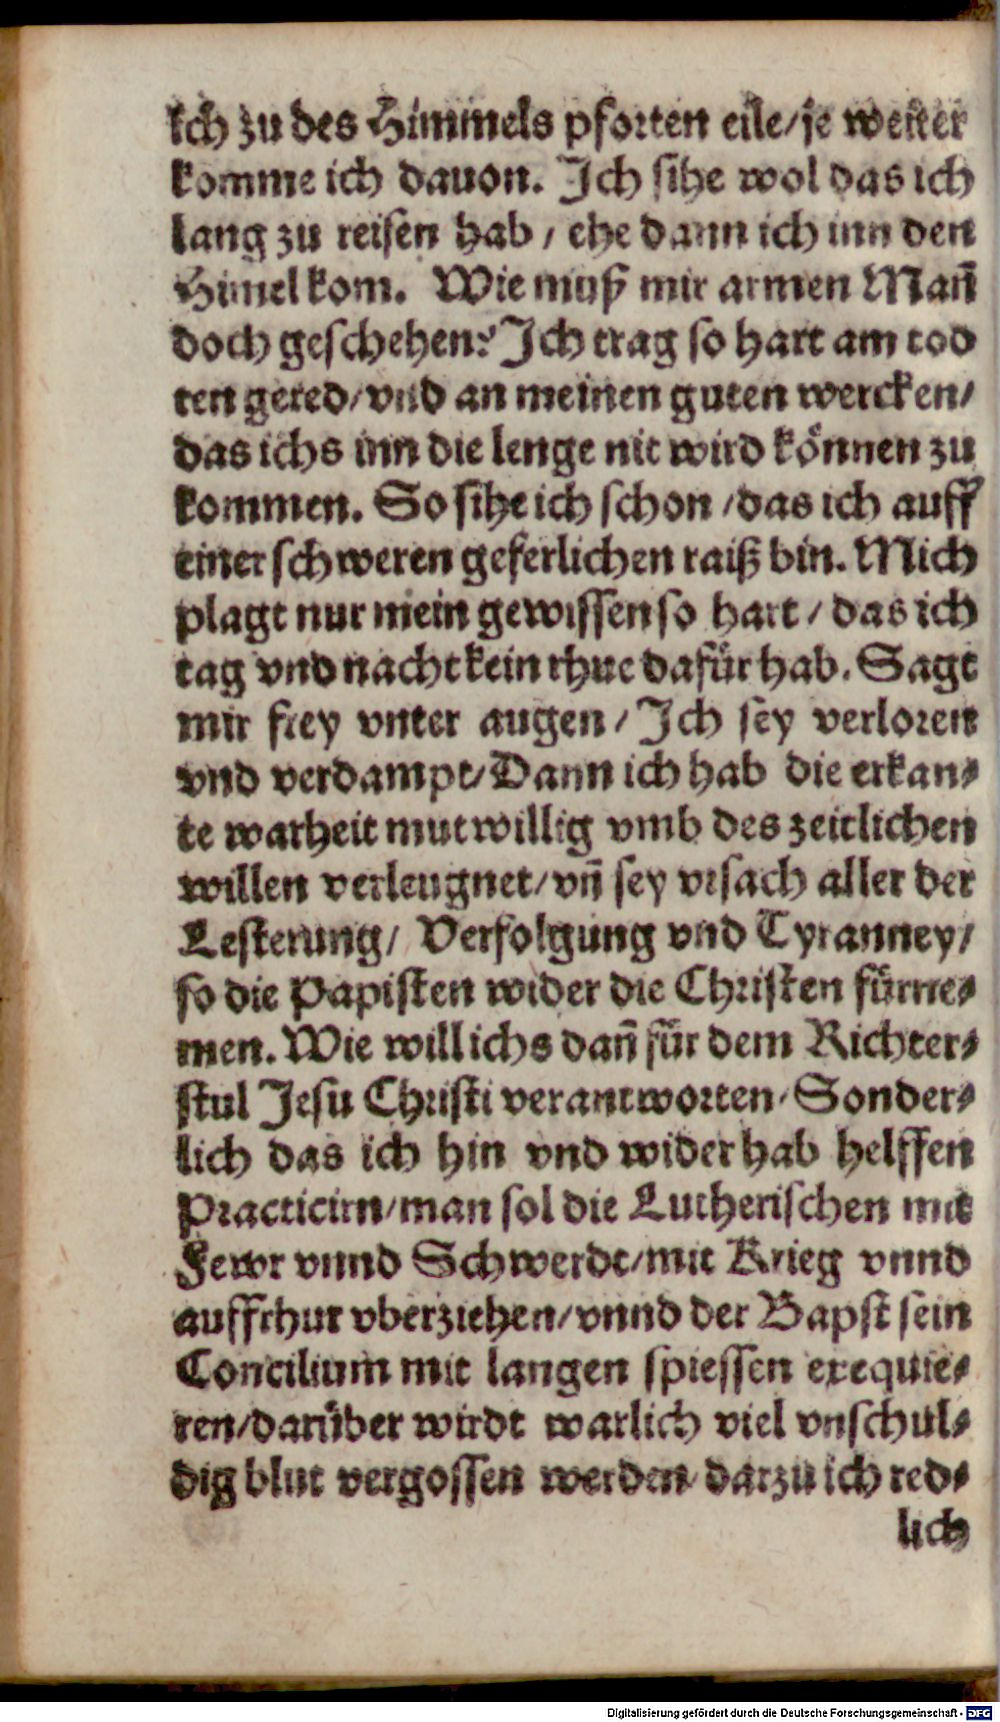 ich zu des Himmels pforten eile/ je weiter
komme ich dauon. Ich sihe wol das ich
lang zu reisen hab / ehe dann ich inn den
Himel kom. Wie muß mir armen Mañ
doch geschehen? Ich trag so hart am tod
ten gered/ vnd an meinen guten wercken/
das ichs inn die lenge nit wird können zu
kommen. So sihe ich schon / das ich auff
einer schweren geferlichen raiß bin. Mich
plagt nur mein gewissen so hart / das ich
tag vnd nacht kein rhue dafür hab. Sagt
mir frey vnter augen / Ich sey verloren
vnd verdampt/ Dann ich hab die erkan⸗
te warheit mutwillig vmb des zeitlichen
willen verleugnet/ vñ sey vrsach aller der
Lesterung/ Verfolgung vnd Tyranney/
so die Papisten wider die Christen fürne⸗
men. Wie will ichs dañ für dem Richter⸗
stul Jesu Christi verantworten/ Sonder⸗
lich das ich hin vnd wider hab helffen
Practicirn/ man sol die Lutherischen mit
Fewr vnnd Schwerdt/ mit Krieg vnnd
auffrhur vberziehen/ vnnd der Bapst sein
Concilium mit langen spiessen exequie⸗
ren/ darüber wirdt warlich viel vnschul⸗
dig blut vergossen werden/ darzu ich red⸗
lich
Digitalisierung gefördert durch die Deutsche Forschungsgemeinschaft - DFG